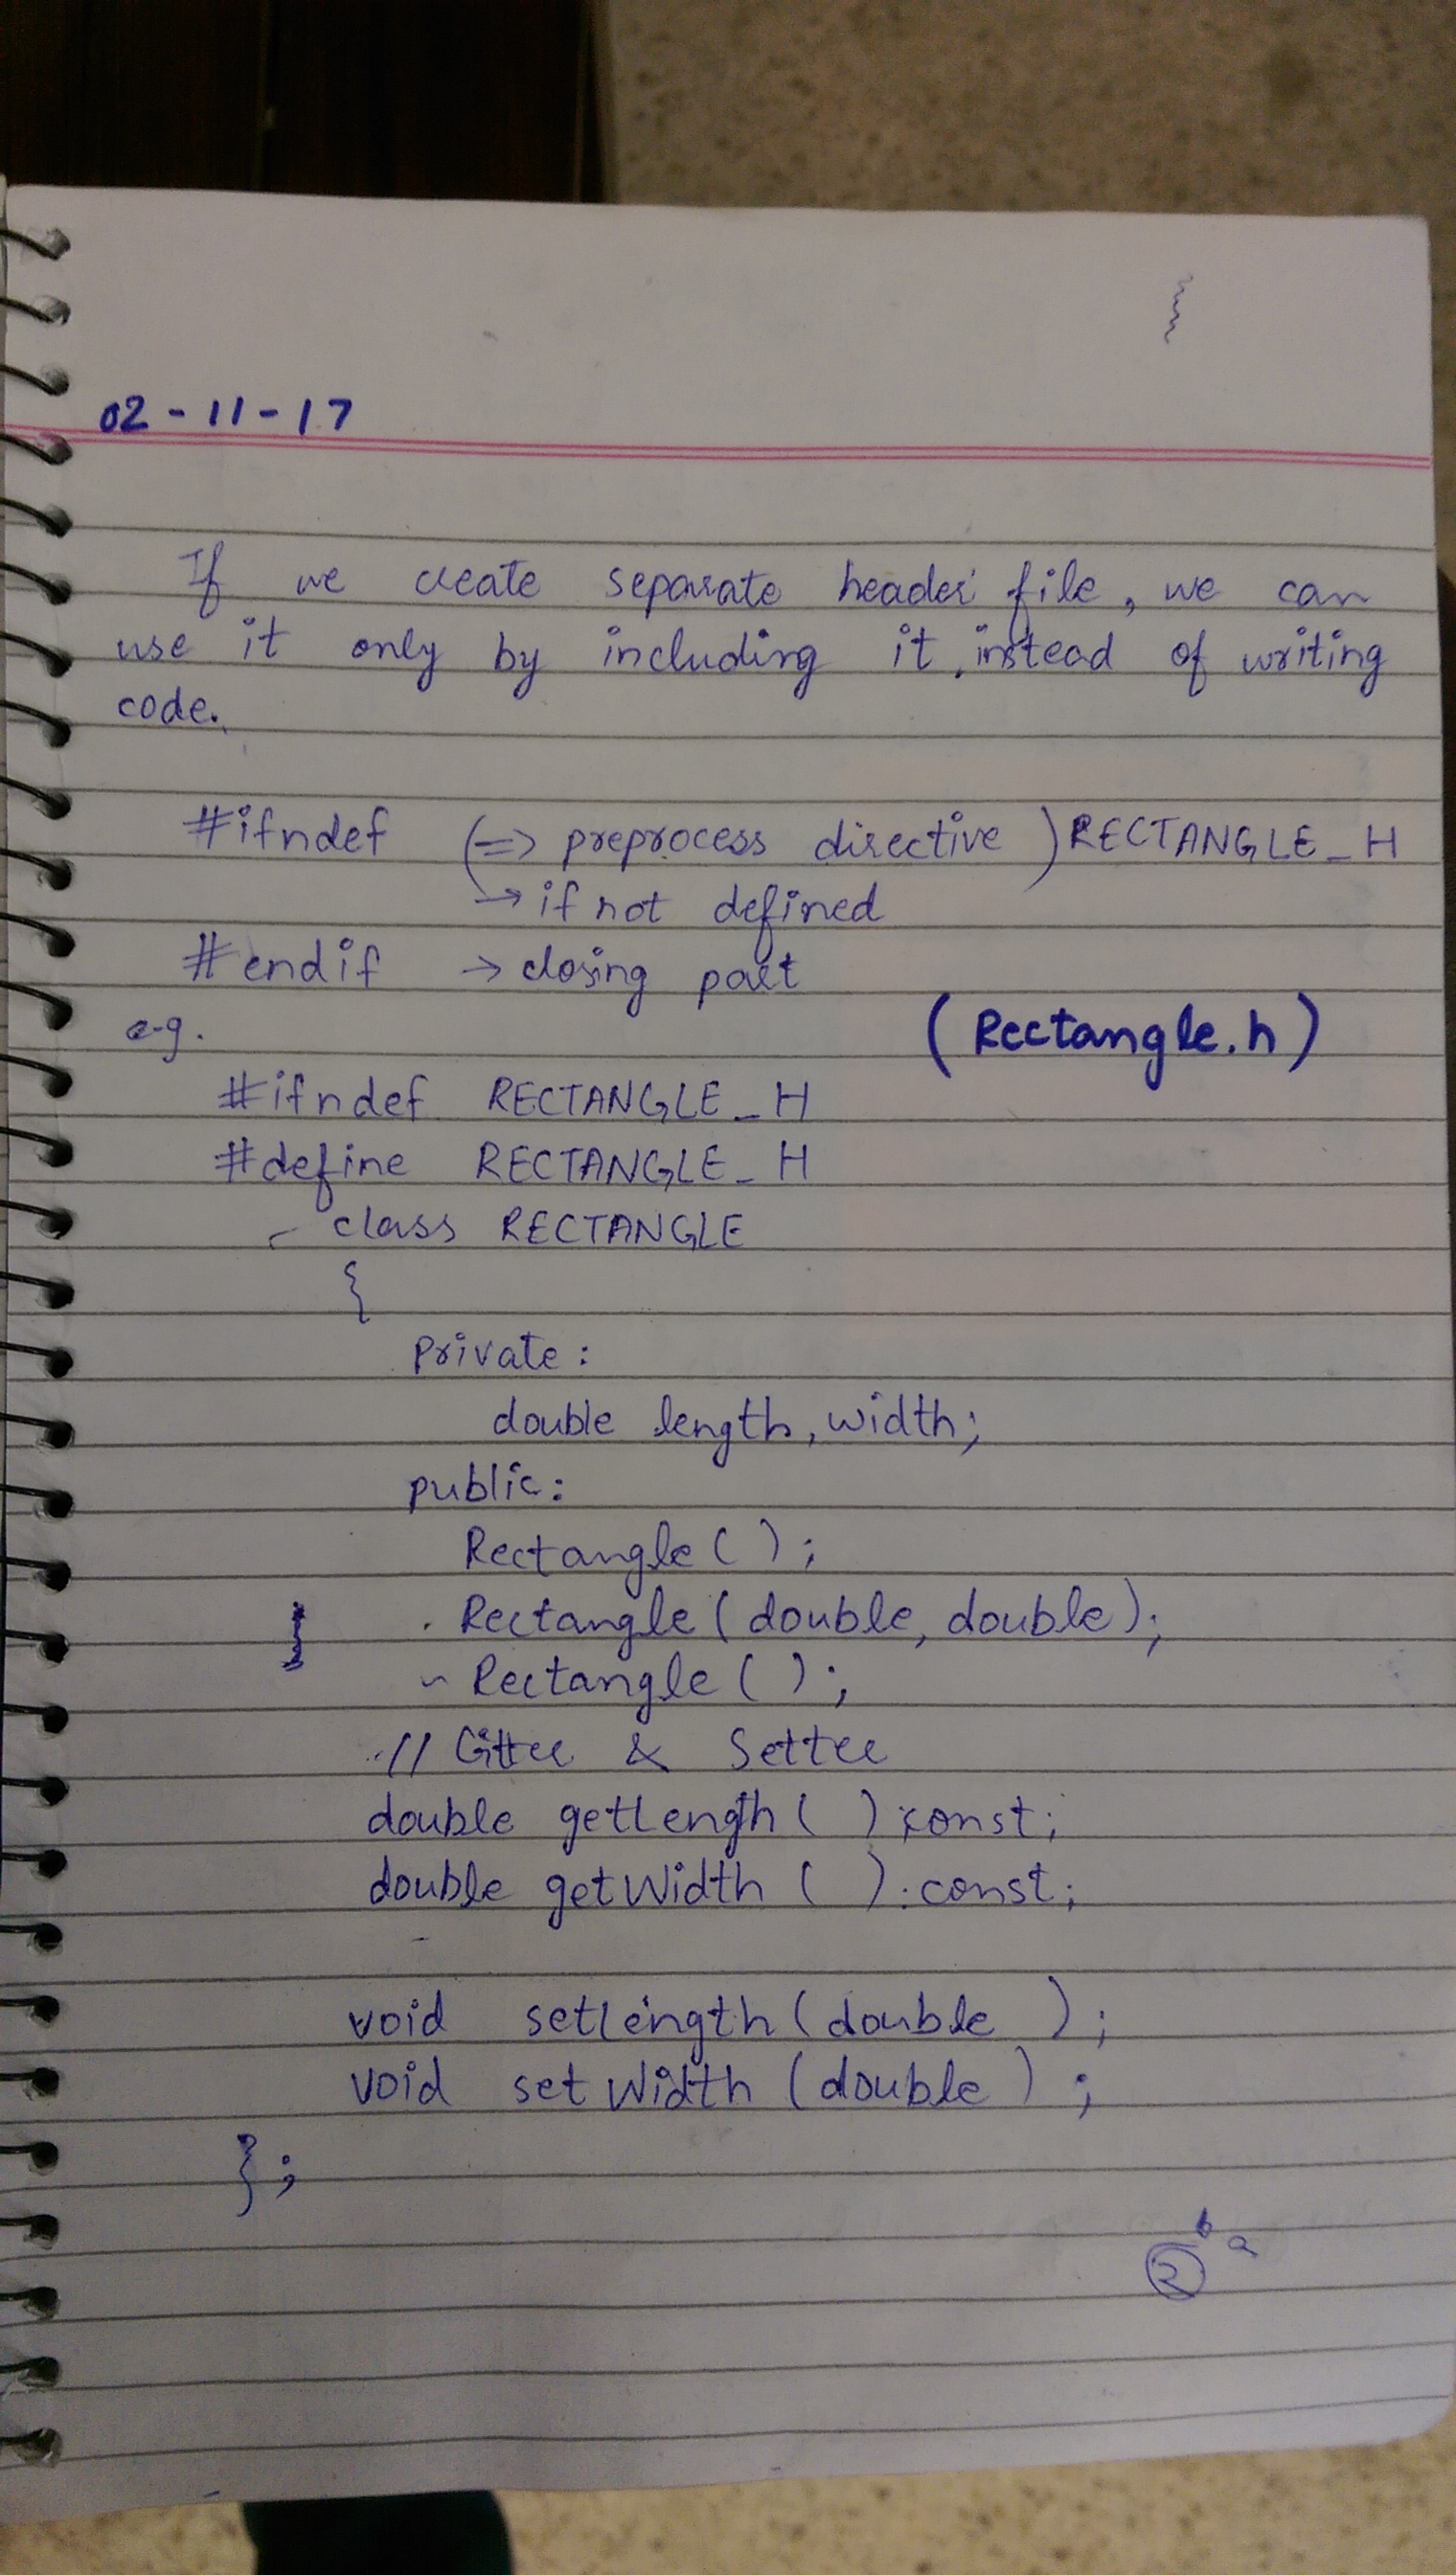 02-11-17
If we create separate header file, we can
use it only by including it, instead of writing
code.
#ifndef (=> preprocess directive) RECTANGLE_H
→ if not defined
#endif → closing part
e.g.
(Rectangle.h)
#ifndef RECTANGLE_H
#define RECTANGLE_H
class RECTANGLE
{
private:
double length, width;
public:
Rectangle ( );
Rectangle (double, double);
~ Rectangle ( );
// Gitter & Setter
double getLength ( ) const;
double getWidth ( ) const;
void setLength (double );
void setWidth (double ) ;
};
b a
2